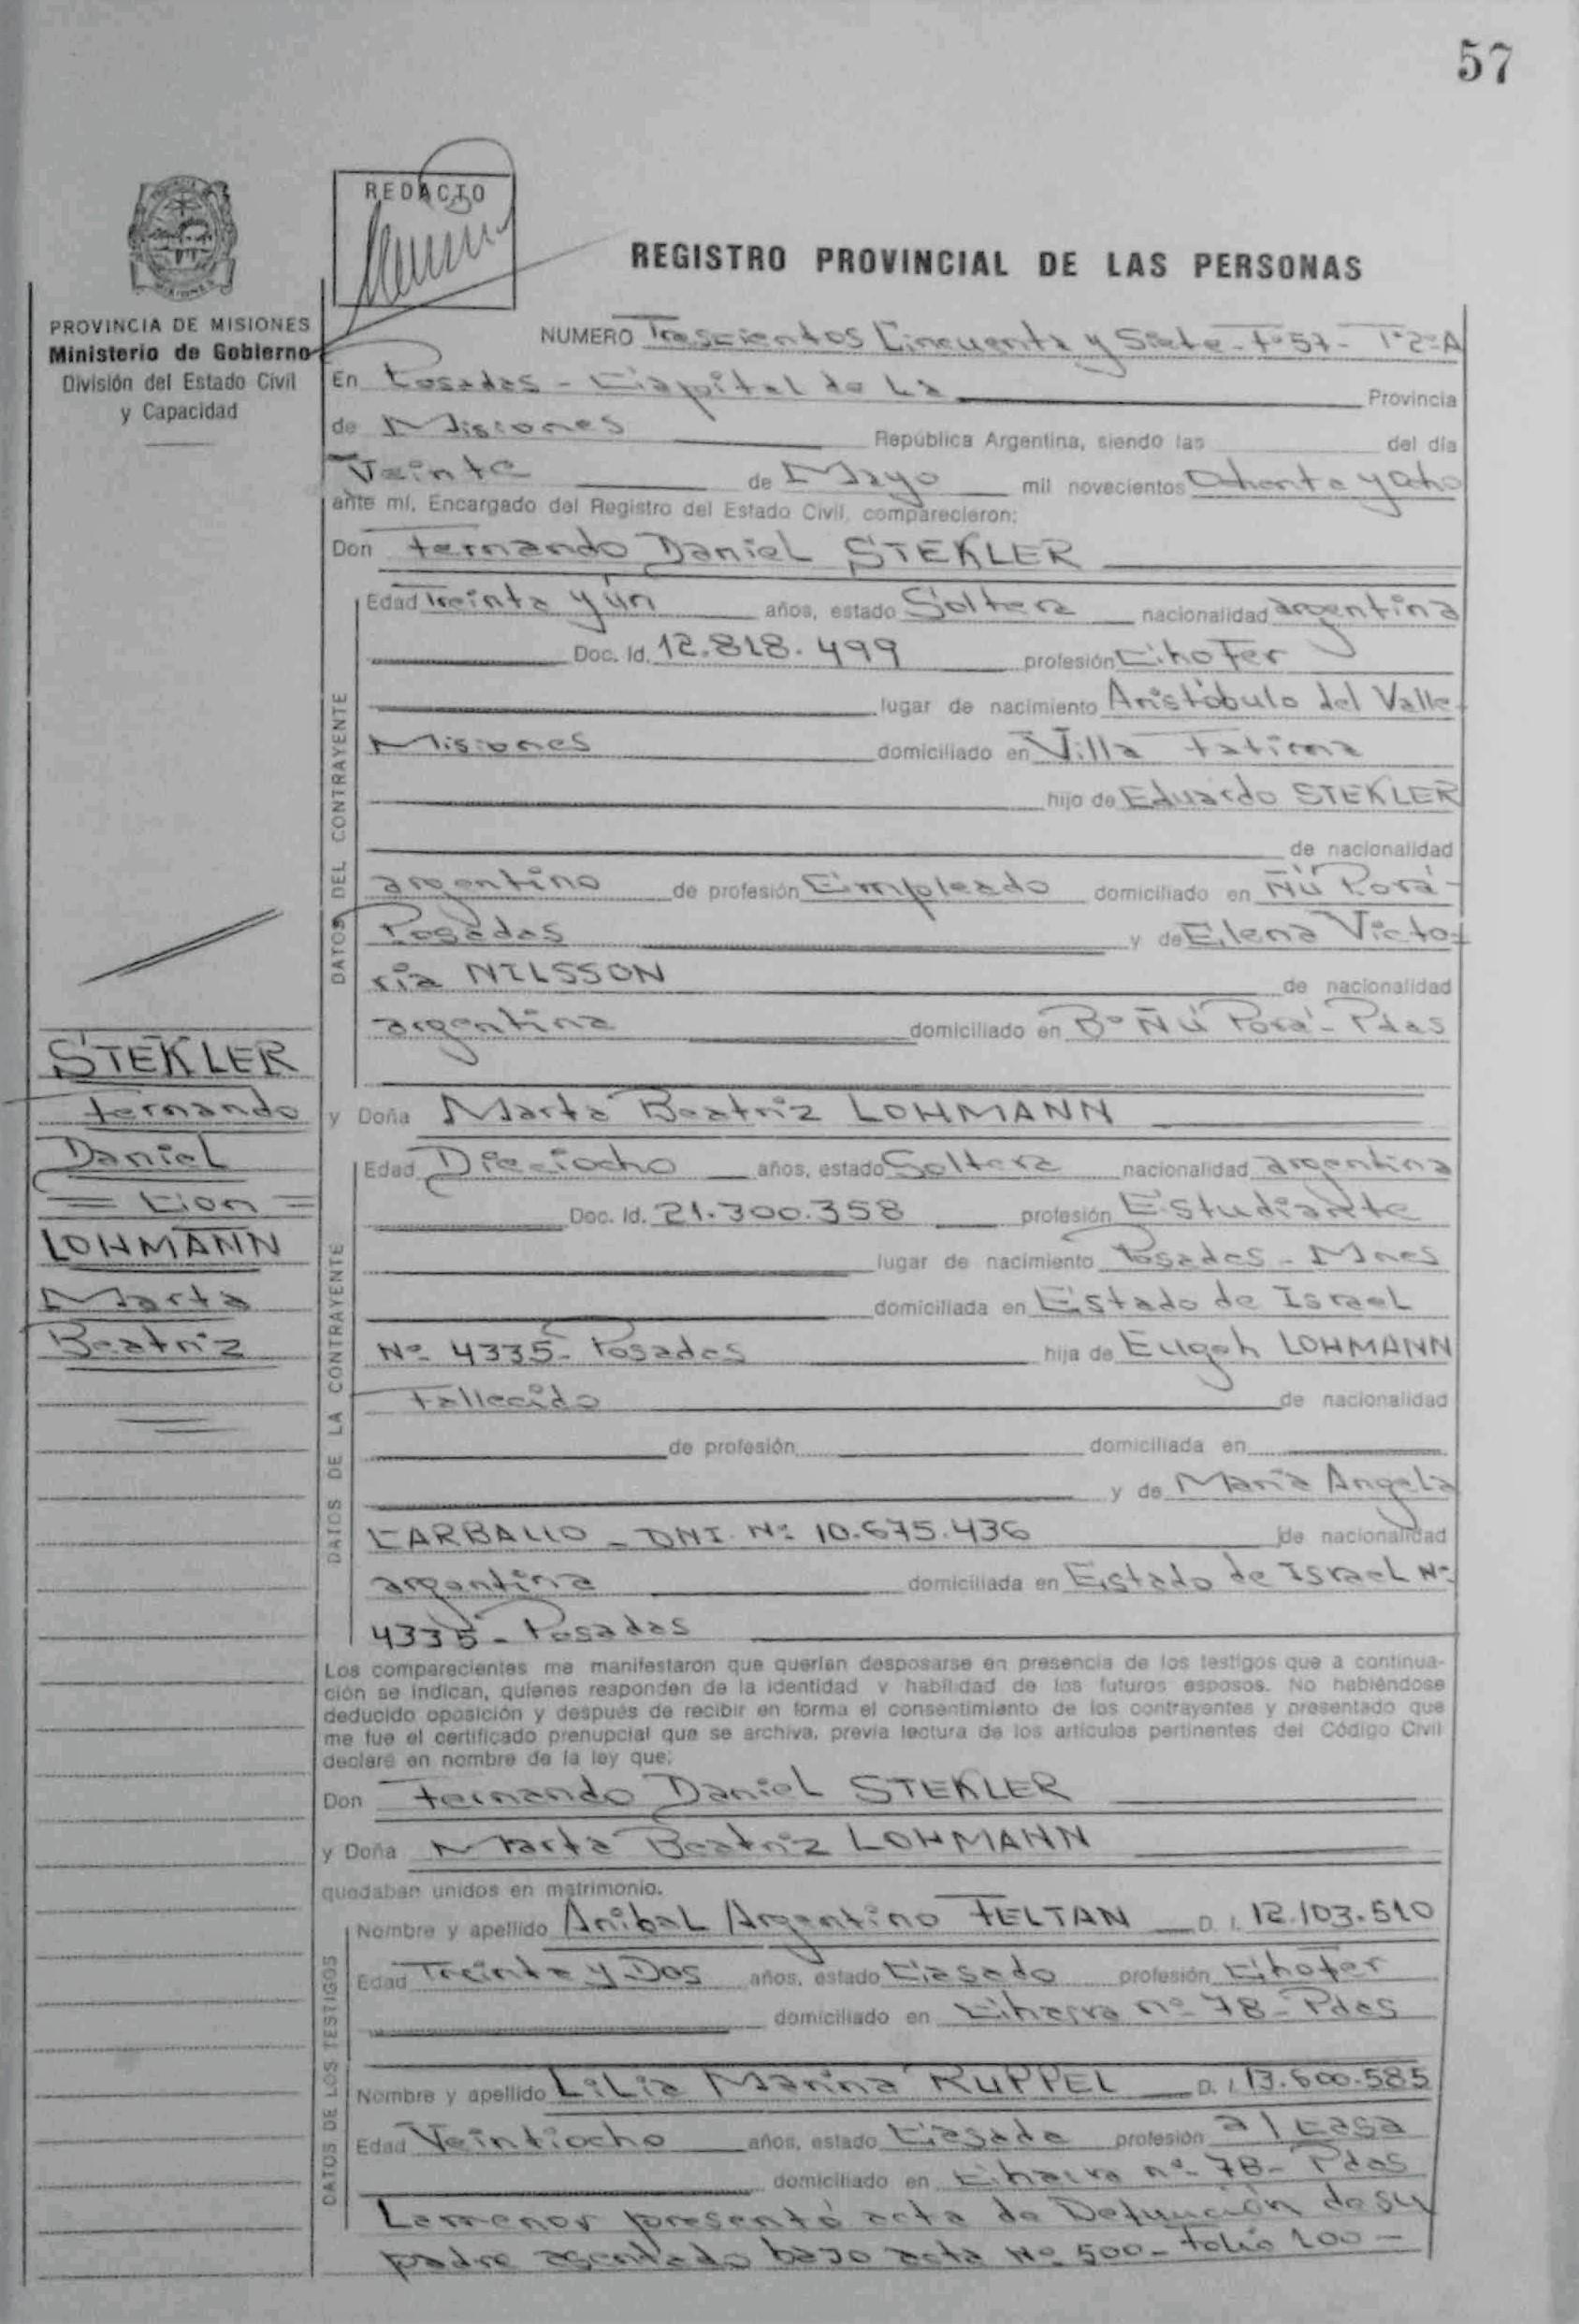 57
REDACTO
REGISTRO PROVINCIAL DE LAS PERSONAS
PROVINCIA DE MISIONES
Ministerio de Gobierno
División del Estado Civil
y Capacidad
NUMERO Trescientos Cincuenta y Siete - Fº 57 - Tº 2º A
En Posadas - Capital de La Provincia
de Misiones República Argentina, siendo las del día
Veinte de Mayo mil novecientos Ochenta y Ocho
ante mí, Encargado del Registro del Estado Civil, comparecieron:
Don Fernando Daniel STEKLER
Edad Treinta y un años, estado Soltero nacionalidad argentina
Doc. Id. 12.818.499 profesión Chofer
lugar de nacimiento Aristóbulo del Valle
Misiones domiciliado en Villa Fatima
hijo de Eduardo STEKLER
de nacionalidad
argentino de profesión Empleado domiciliado en Ñú Porá -
Posadas y de Elena Victo-
ria NILSSON de nacionalidad
argentina domiciliado en Bº Ñú Porá - Pdas
DATOS DEL CONTRAYENTE
STEKLER
Fernando
Daniel
= Con =
LOHMANN
Marta
Beatriz
y Doña Marta Beatriz LOHMANN
Edad Dieciocho años, estado Soltera nacionalidad argentina
Doc. Id. 21.300.358 profesión Estudiante
lugar de nacimiento Posadas - Mnes
domiciliada en Estado de Israel
Nº 4335 - Posadas hija de Eugen LOHMANN
Fallecido de nacionalidad
de profesión domiciliada en
y de María Angela
CARBALLO - DNI. Nº 10.675.436 de nacionalidad
argentina domiciliada en Estado de Israel Nº
4335 - Posadas
DATOS DE LA CONTRAYENTE
Los comparecientes me manifestaron que querían desposarse en presencia de los testigos que a continua-
ción se indican, quienes responden de la identidad y habilidad de los futuros esposos. No habiéndose
deducido oposición y después de recibir en forma el consentimiento de los contrayentes y presentado que
me fue el certificado prenupcial que se archiva, previa lectura de los artículos pertinentes del Código Civil
declaré en nombre de la ley que:
Don Fernando Daniel STEKLER
y Doña Marta Beatriz LOHMANN
quedaban unidos en matrimonio.
Nombre y apellido Anibal Argentino FELTAN D. I. 12.103.510
Edad Treinta y Dos años, estado Casado profesión Chofer
domiciliado en nº 78 - Pdas
Nombre y apellido Lilia Marina RUPPEL D. I. 13.600.585
Edad Veintiocho años, estado Casada profesión a/ casa
domiciliado en nº 78 - Pdas
DATOS DE LOS TESTIGOS
La menor presentó acta de Defunción de su
padre asentado bajo acta Nº 500 - folio 100 -